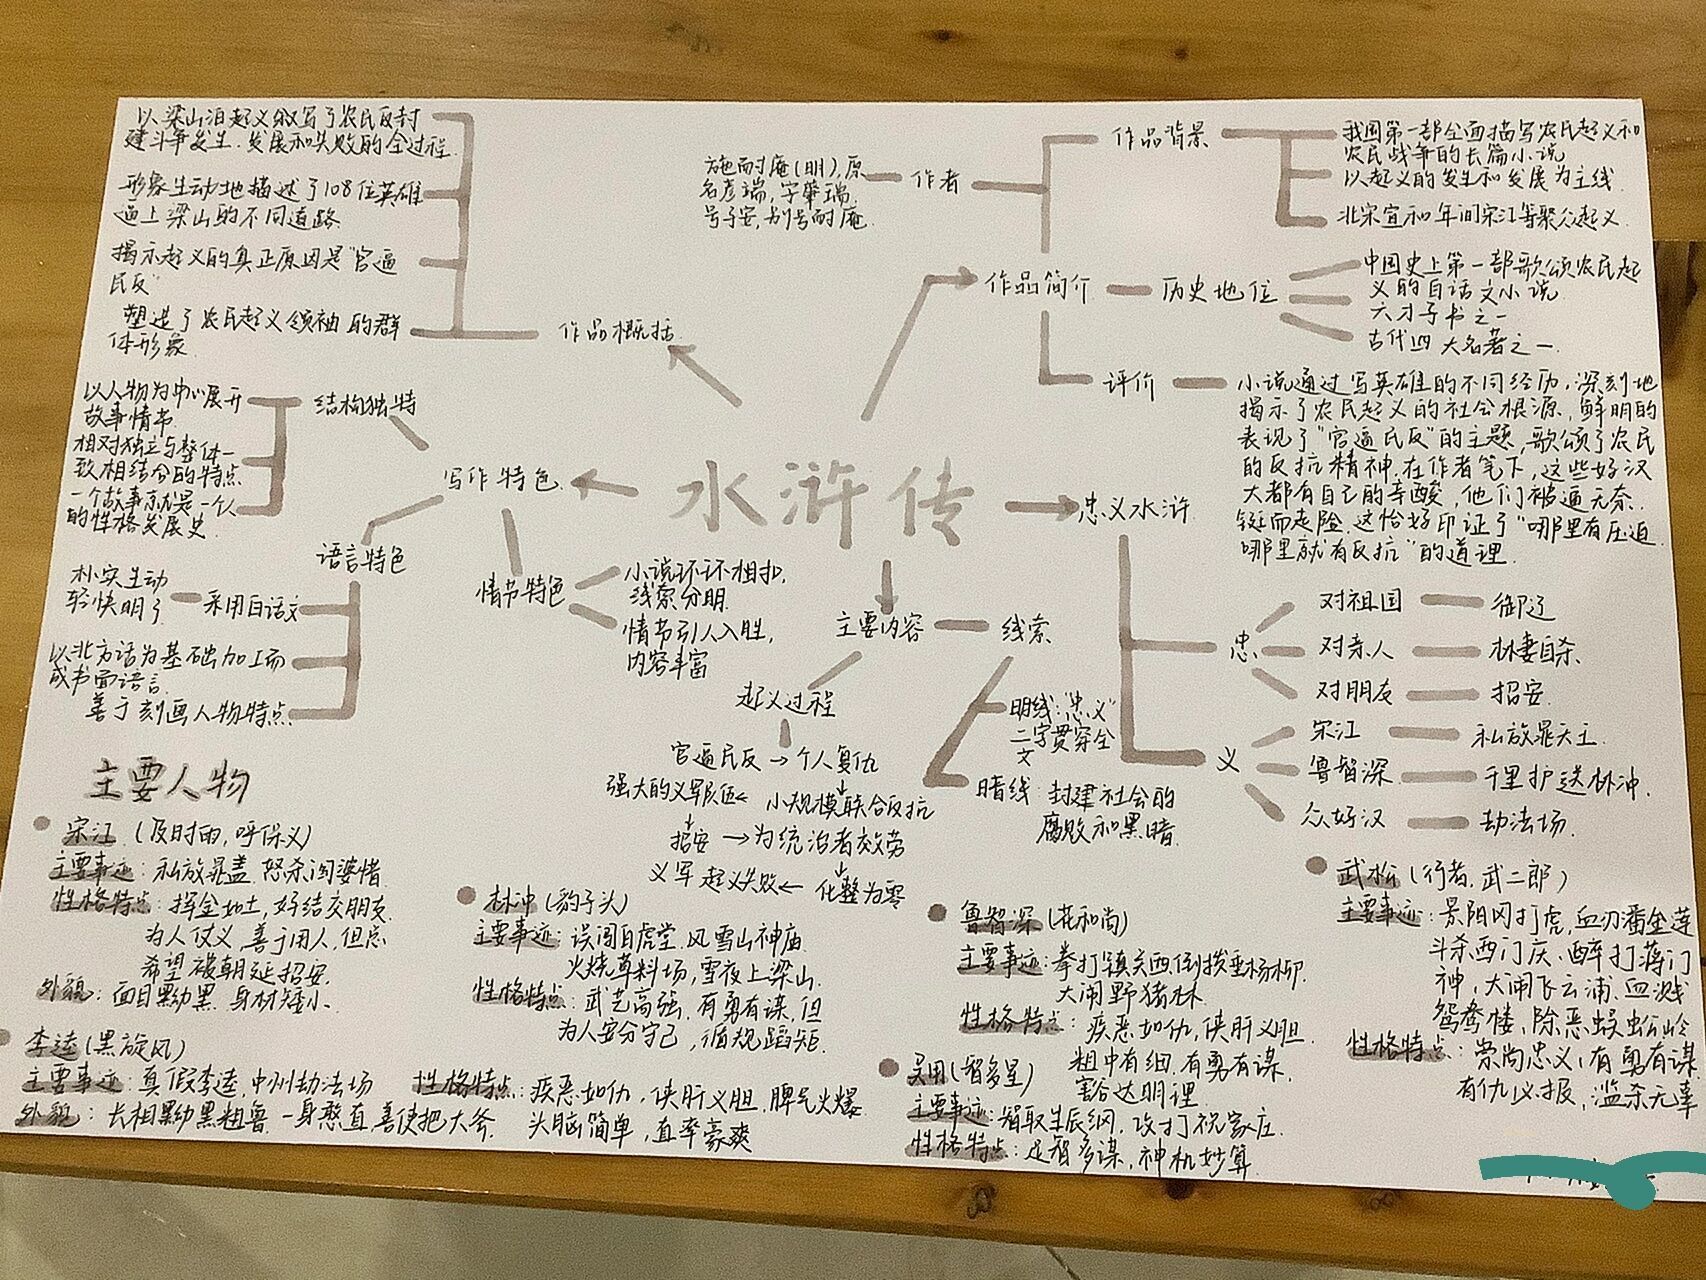 水浒传
作品概括
以梁山泊起义叙写了农民反封
建斗争发生、发展和失败的全过程
形象生动地描述了108位英雄
逼上梁山的不同道路
揭示起义的真正原因是“官逼
民反”
塑造了农民起义领袖的群
体形象
作品简介
作者
施耐庵(明),原
名彦端,字肇瑞
号子安,别号耐庵
作品背景
我国第一部全面描写农民起义和
农民战争的长篇小说
以起义的发生和发展为主线
北宋宣和年间宋江等聚众起义
历史地位
中国史上第一部歌颂农民起
义的白话文小说
六才子书之一
古代四大名著之一
评价
小说通过写英雄的不同经历,深刻地
揭示了农民起义的社会根源,鲜明的
表现了“官逼民反”的主题,歌颂了农民
的反抗精神.在作者笔下,这些好汉
大都有自己的辛酸,他们被逼无奈.
铤而走险.这恰好印证了“哪里有压迫
哪里就有反抗”的道理.
写作特色
结构独特
以人物为中心展开
故事情节
相对独立与整体一
致相结合的特点
一个故事就是一个人
的性格发展史
语言特色
朴实生动
轻快明了
采用白话文
以北方话为基础加工而
成书面语言
善于刻画人物特点
情节特色
小说环环相扣,
线索分明
情节引人入胜,
内容丰富
主要内容
线索
明线:“忠义”
二字贯穿全
文
暗线:封建社会的
腐败和黑暗
起义过程
官逼民反→个人复仇
强大的义军队伍←小规模联合反抗
招安→为统治者效劳
义军起义失败←化整为零
忠义水浒
忠
对祖国 御辽
对亲人 林妻自杀
对朋友 招安
义
宋江 私放晁天王
鲁智深 千里护送林冲
众好汉 劫法场
主要人物
宋江(及时雨,呼保义)
主要事迹:私放晁盖 怒杀阎婆惜
性格特点:挥金如土,好结交朋友
为人仗义,善于用人,但总
希望被朝廷招安
外貌:面目黝黑 身材矮小.
李逵(黑旋风)
主要事迹:真假李逵,中州劫法场
外貌:长相黝黑粗鲁 一身憨直 善使把大斧
性格特点:疾恶如仇,侠肝义胆.脾气火爆
头脑简单,直率豪爽
林冲(豹子头)
主要事迹:误闯白虎堂.风雪山神庙
火烧草料场,雪夜上梁山.
性格特点:武艺高强,有勇有谋,但
为人安分守己,循规蹈矩.
鲁智深(花和尚)
主要事迹:拳打镇关西,倒拔垂杨柳
大闹野猪林
性格特点:疾恶如仇,侠肝义胆
粗中有细.有勇有谋.
豁达明理
吴用(智多星)
主要事迹:智取生辰纲,攻打祝家庄.
性格特点:足智多谋,神机妙算.
武松(行者,武二郎)
主要事迹:景阳冈打虎,血刃潘金莲
斗杀西门庆.醉打蒋门
神,大闹飞云浦.血溅
鸳鸯楼,除恶蜈蚣岭
性格特点:崇尚忠义,有勇有谋
有仇必报,滥杀无辜